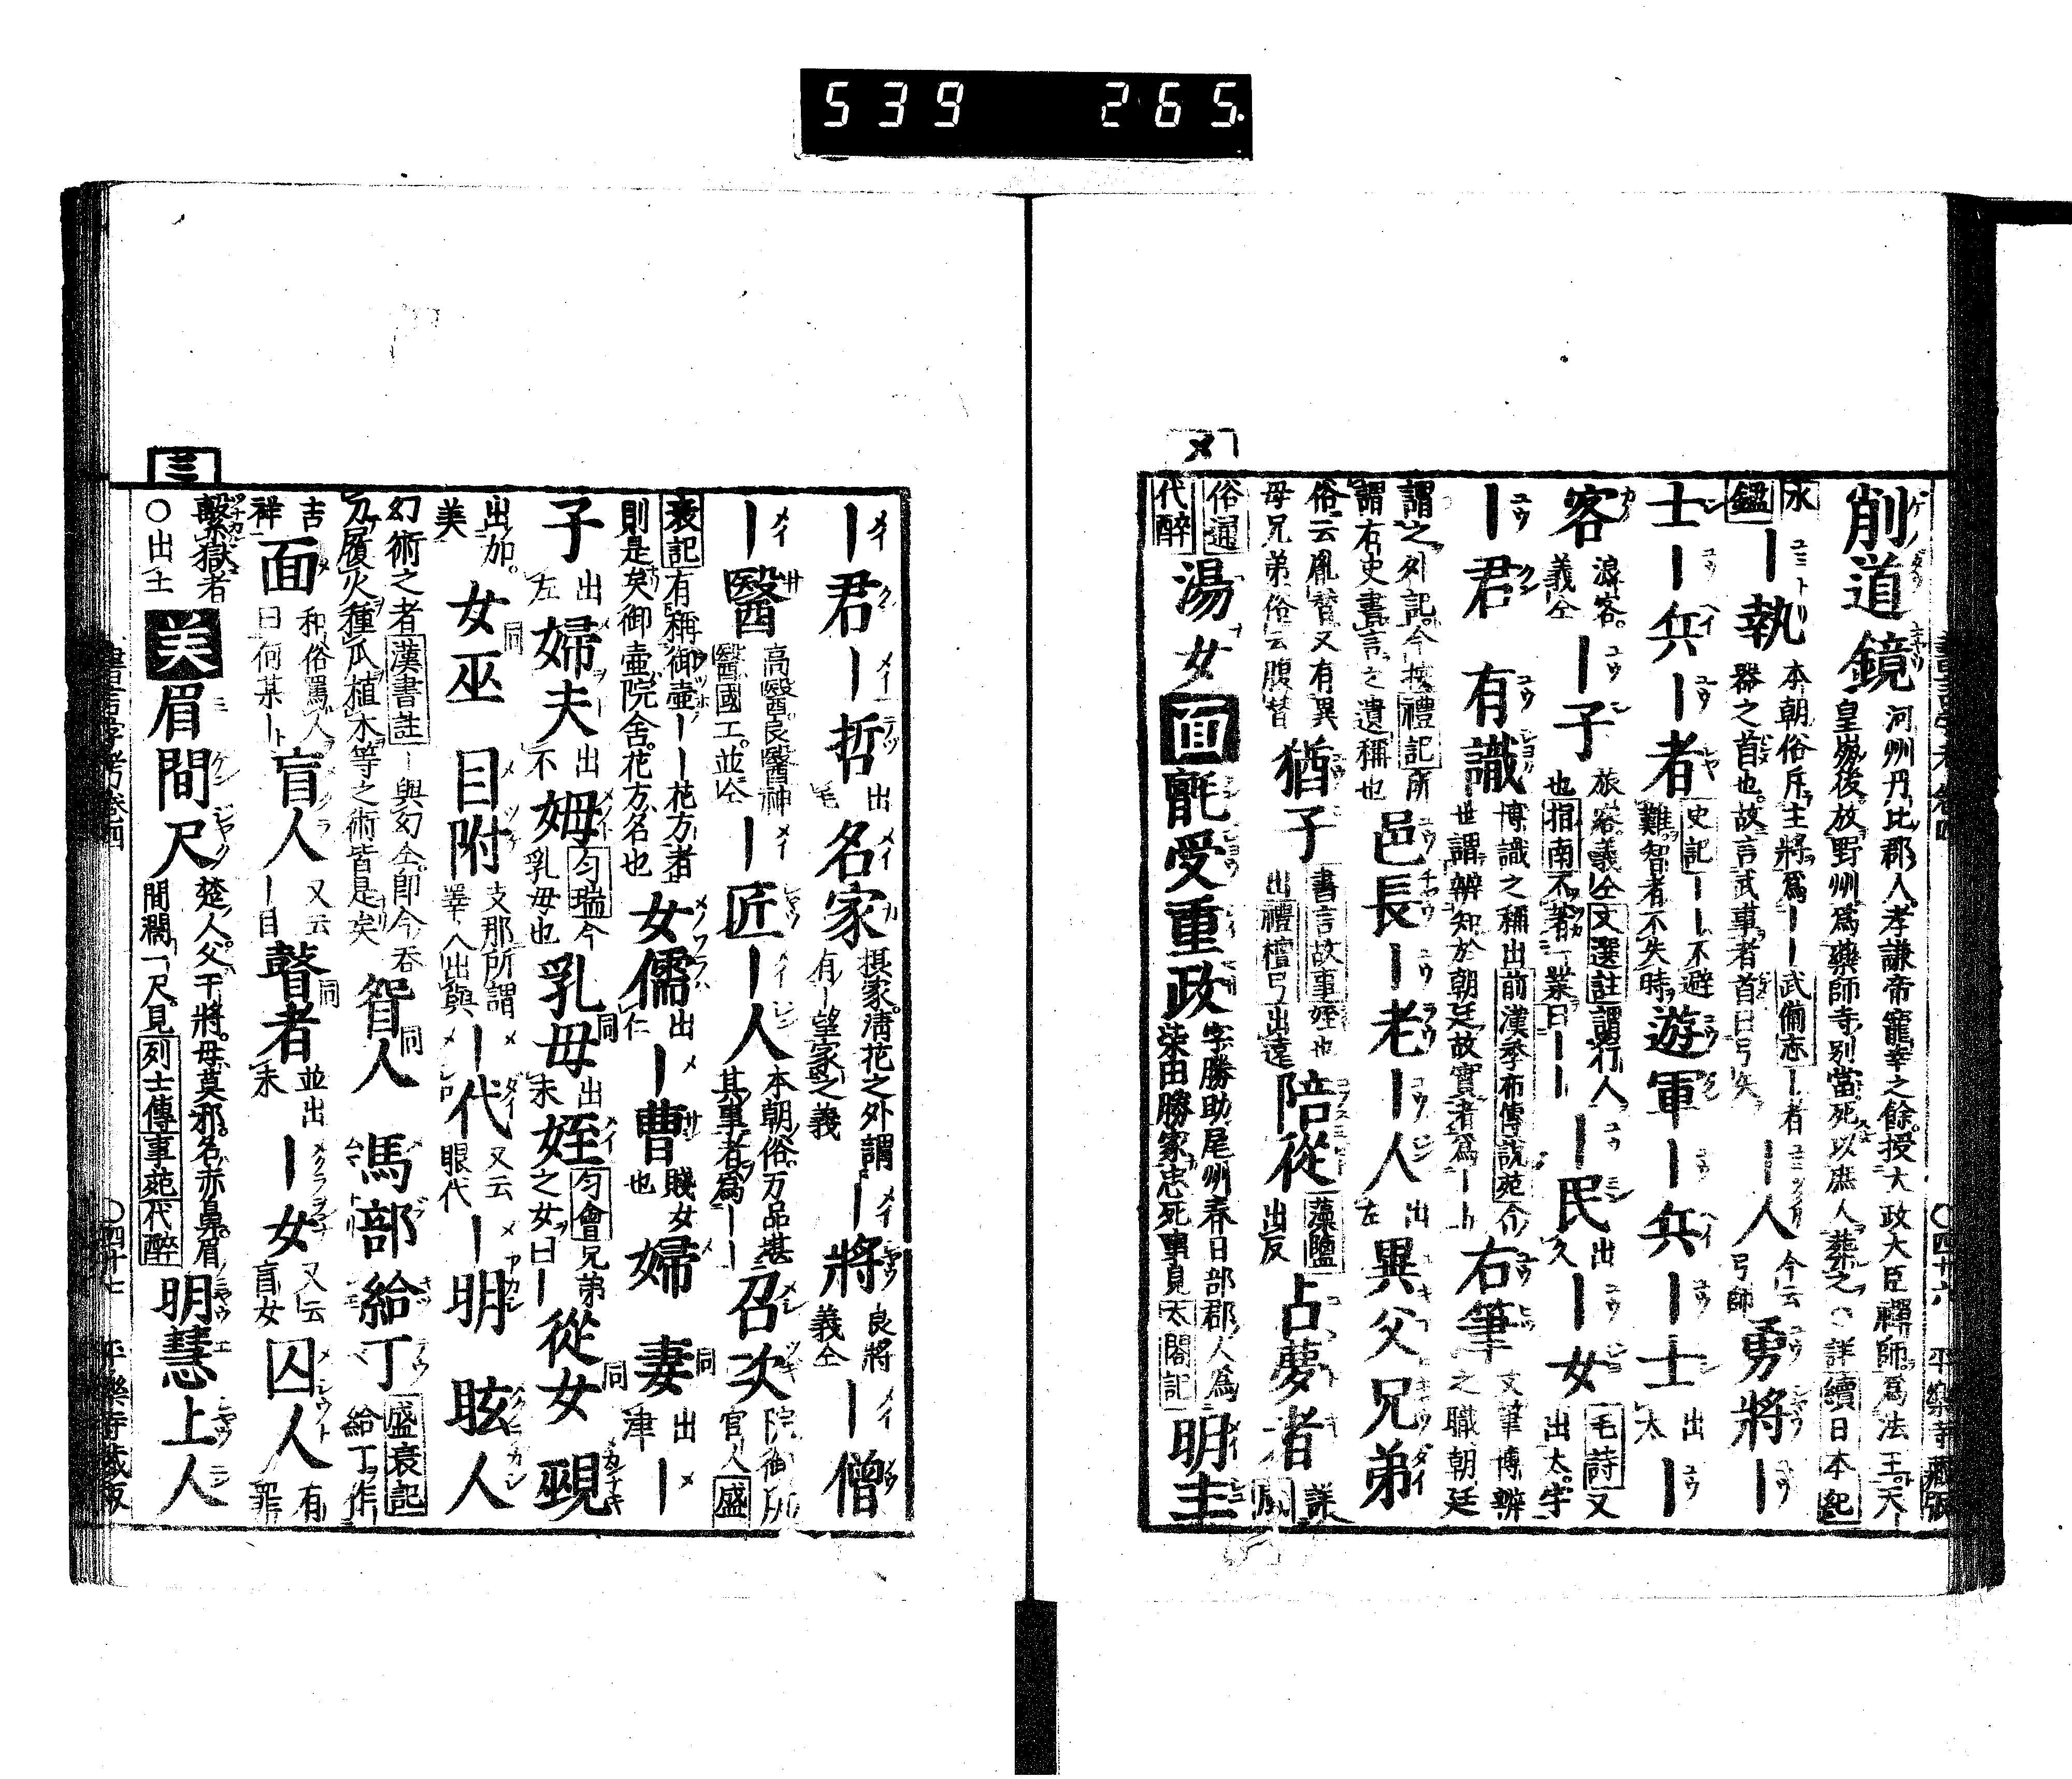 539 265
メ
削道鏡 河州丹比郡人孝謙帝寵幸之餘授大政大臣禪師爲法王天
皇崩後放野州爲藥師寺別當死以庶人葬之 詳續日本紀
永
鑑
｜執 本朝俗斥主將爲｜｜武備志｜者
器之首也故言武事者首曰弓矢
｜人 今云
弓師
勇將｜
士｜兵｜者 史記｜｜不避
難智者不失時
遊軍｜兵｜士 出
太
｜
客 浪客
義仝
｜子 旅客義仝文選註謂行人
也指南不著一業曰｜｜
｜民 出
久
｜女 毛詩又
出太字
｜君 有識 博識之稱出前漢季布傳說苑今
世謂辨知於朝廷故實者爲｜｜
右筆 文筆博辨
之職朝廷
謂之外記今按禮記所
謂右史書言之遺稱也
邑長｜老｜人 出
左
異父兄弟
俗云胤替又有異
母兄弟俗云腹替
猶子 書言故事姪也
出禮檀弓
陪從 藻鹽
出反
占夢者 詳
周
俗通
代醉
湯女 面 毛受重政 字勝助尾州春日部郡人爲
柴田勝家忠死事見太閤記
明主
書言字考卷四 ○四十六 平樂寺藏版
｜君｜哲 出
毛
名家 摂家淸花之外謂
有｜望家之義
｜將 良將
義仝
｜僧
｜醫 高醫良醫神
醫國工並仝
｜匠｜人 本朝俗万品堪
其事者爲｜｜
召次 院御所
官人盛
衰記有稱御壷｜｜花方者
則是矣御壷院舍花方名也
女儒 出
仁
｜曹 賤女
也
婦 妻 同 出
津
｜
子 出
左
婦夫 出
不
姆 匀瑞今
乳母也
乳母 同 出
末
姪 匀會兄弟
之女曰｜
從女 同 覡
出加
美
女巫 同 目附 支那所謂
｜代 又云
眼代
｜明 眩人
幻術之者漢書註｜與幻仝即今吞
刀履火種瓜植木等之術皆是矣
眢人 同 馬部 給丁 盛衰記
給丁作｜
吉
祥
面 和俗罵人
曰何某｜ト
盲人 又云
｜目
瞽者 同 並出
末
｜女 又云
盲女
囚人 有
罪
繫獄者
○出土
美 眉間尺 楚人父干將母莫邪名赤鼻眉
間濶一尺見列士傳事苑代醉
明慧上人
三
書言字考卷四 ○四十七 平樂寺藏版